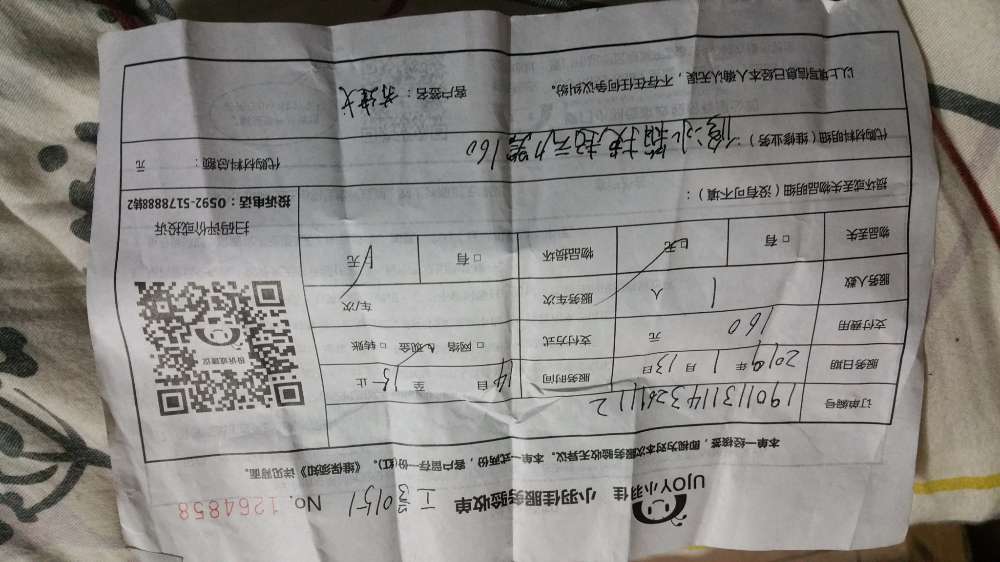 UJOY小羽佳 小羽佳服务验收单 工号0151 No. 1264858
本单一经接签，即视为对本次服务验收无异议。本单一式两份，客户留存一份(红)。《维保须知》详见背面。
订单编号 190113114326111 2
服务日期 2019年1月13日 服务时间 14日 至 15 止
支付费用 160 元 支付方式 □网络 □现金 □转账
服务人数 1 人 服务车次 车/次
物品丢失 □有 □无 物品损坏 □有 □无
投诉建议
扫码评价或投诉
投诉电话：0592-5178888转2
损坏或丢失物品明细（没有可不填）：
代购材料明细（维修业务）：修冰箱换起动器160
代购材料总额： 元
以上填写信息已经本人确认无误，不存在任何争议纠纷。
客户签名：